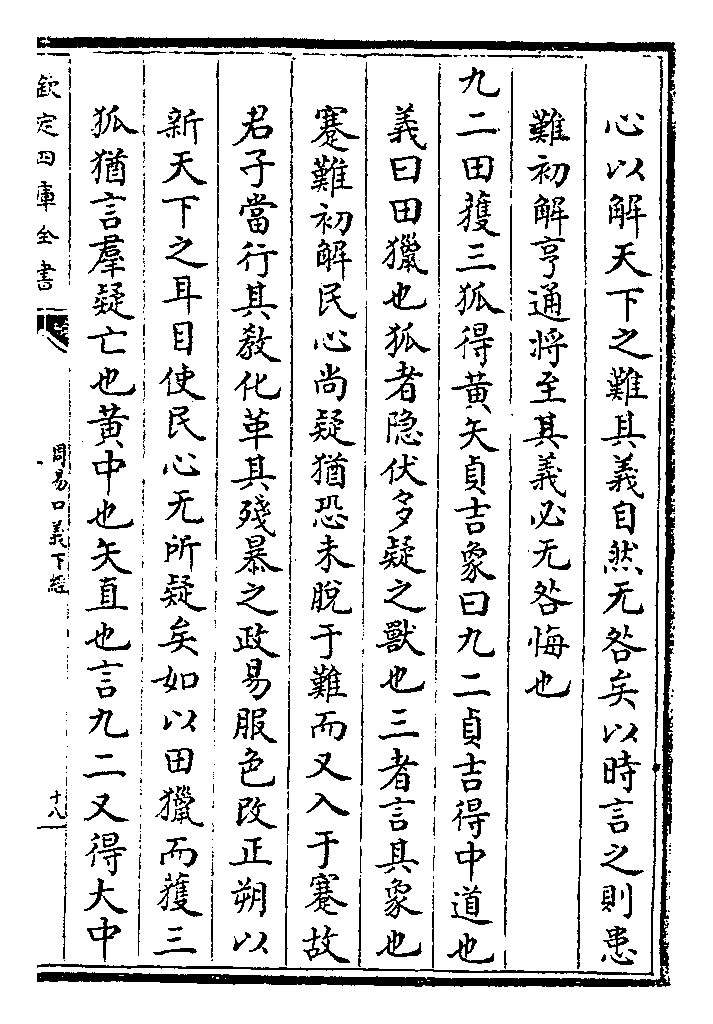 心以解天下之難其義自然无咎矣以時言之則患
難初解亨通將至其義必无咎悔也
九二田獲三狐得黃矢貞吉象曰九二貞吉得中道也
義曰田獵也狐者隐伏多疑之獸也三者言其象也
蹇難初解民心尚疑猶恐未脫于難而又入于蹇故
君子當行其教化革其殘暴之政易服色改正朔以
新天下之耳目使民心无所疑矣如以田獵而獲三
狐猶言羣疑亡也黃中也矢直也言九二又得大中
欽定四庫全書
周易口義下經
十八